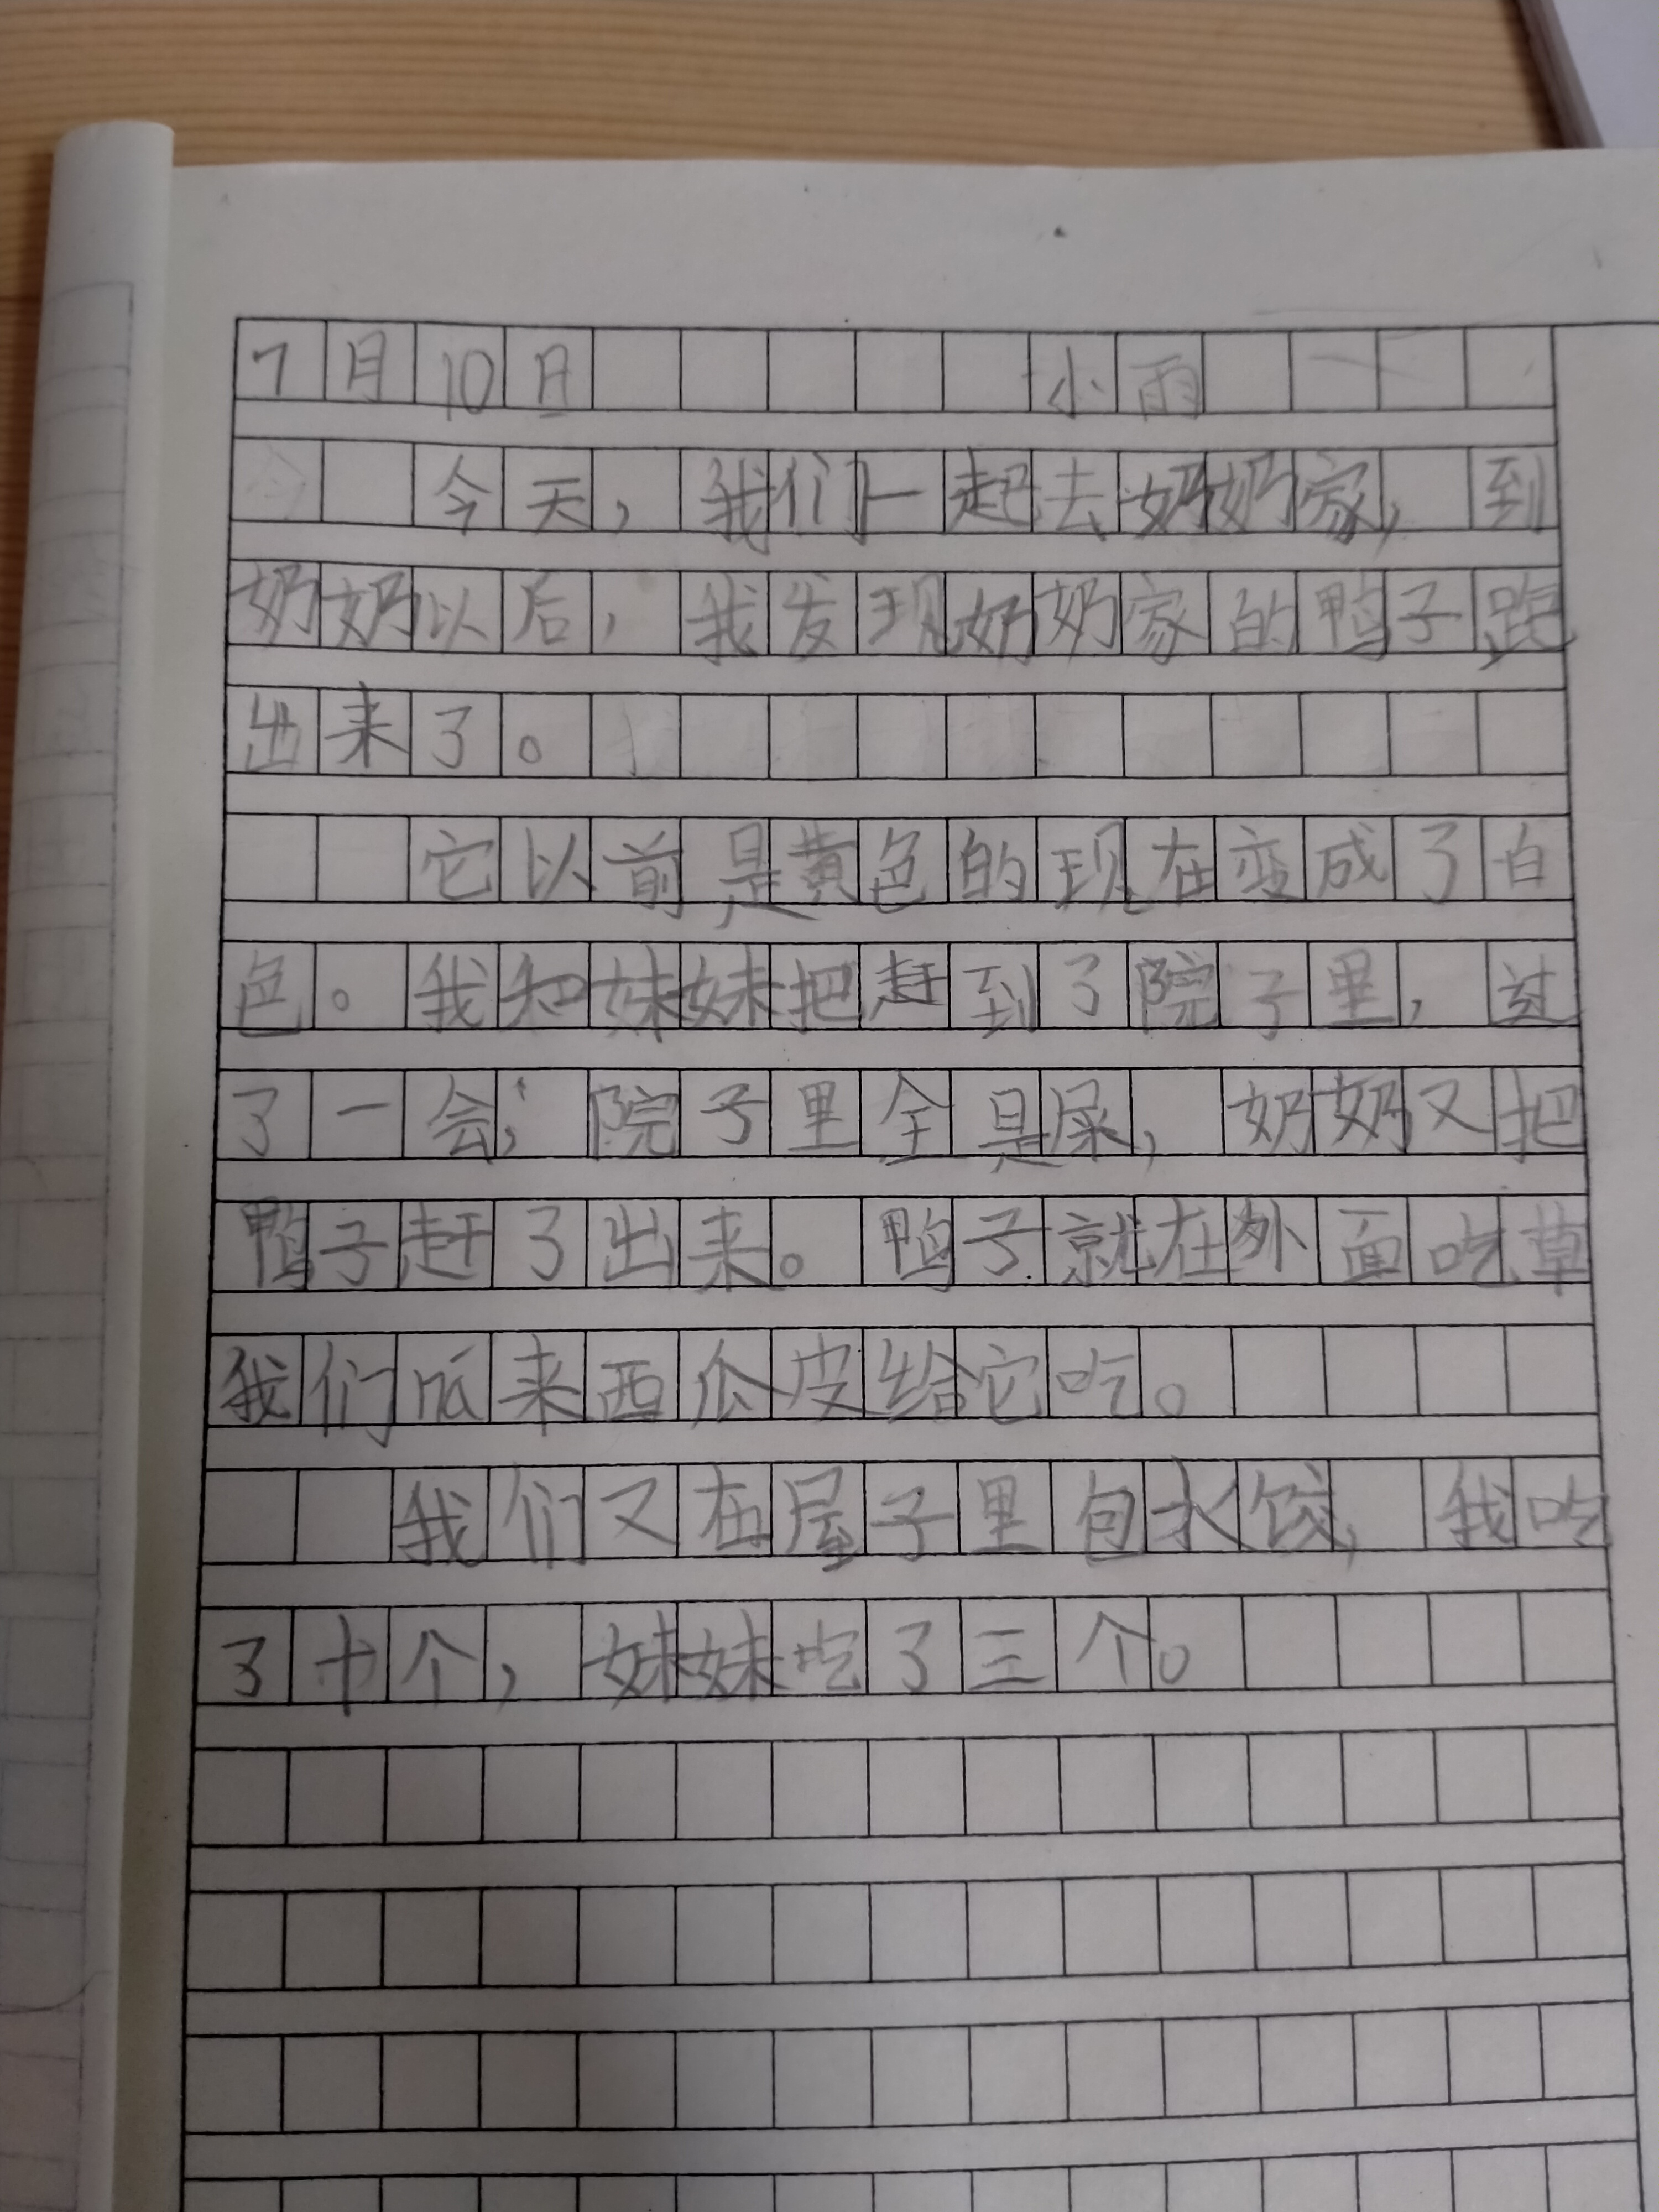 7月10日 小雨
今天，我们一起去奶奶家，到
奶奶以后，我发现奶奶家的鸭子跑
出来了。
它以前是黄色的现在变成了白
色。我和妹妹把赶到了院子里，过
了一会，院子里全是屎，奶奶又把
鸭子赶了出来。鸭子就在外面吃草
我们瓜来西瓜皮给它吃。
我们又在屋子里包水饺，我吃
了十个，妹妹吃了三个。